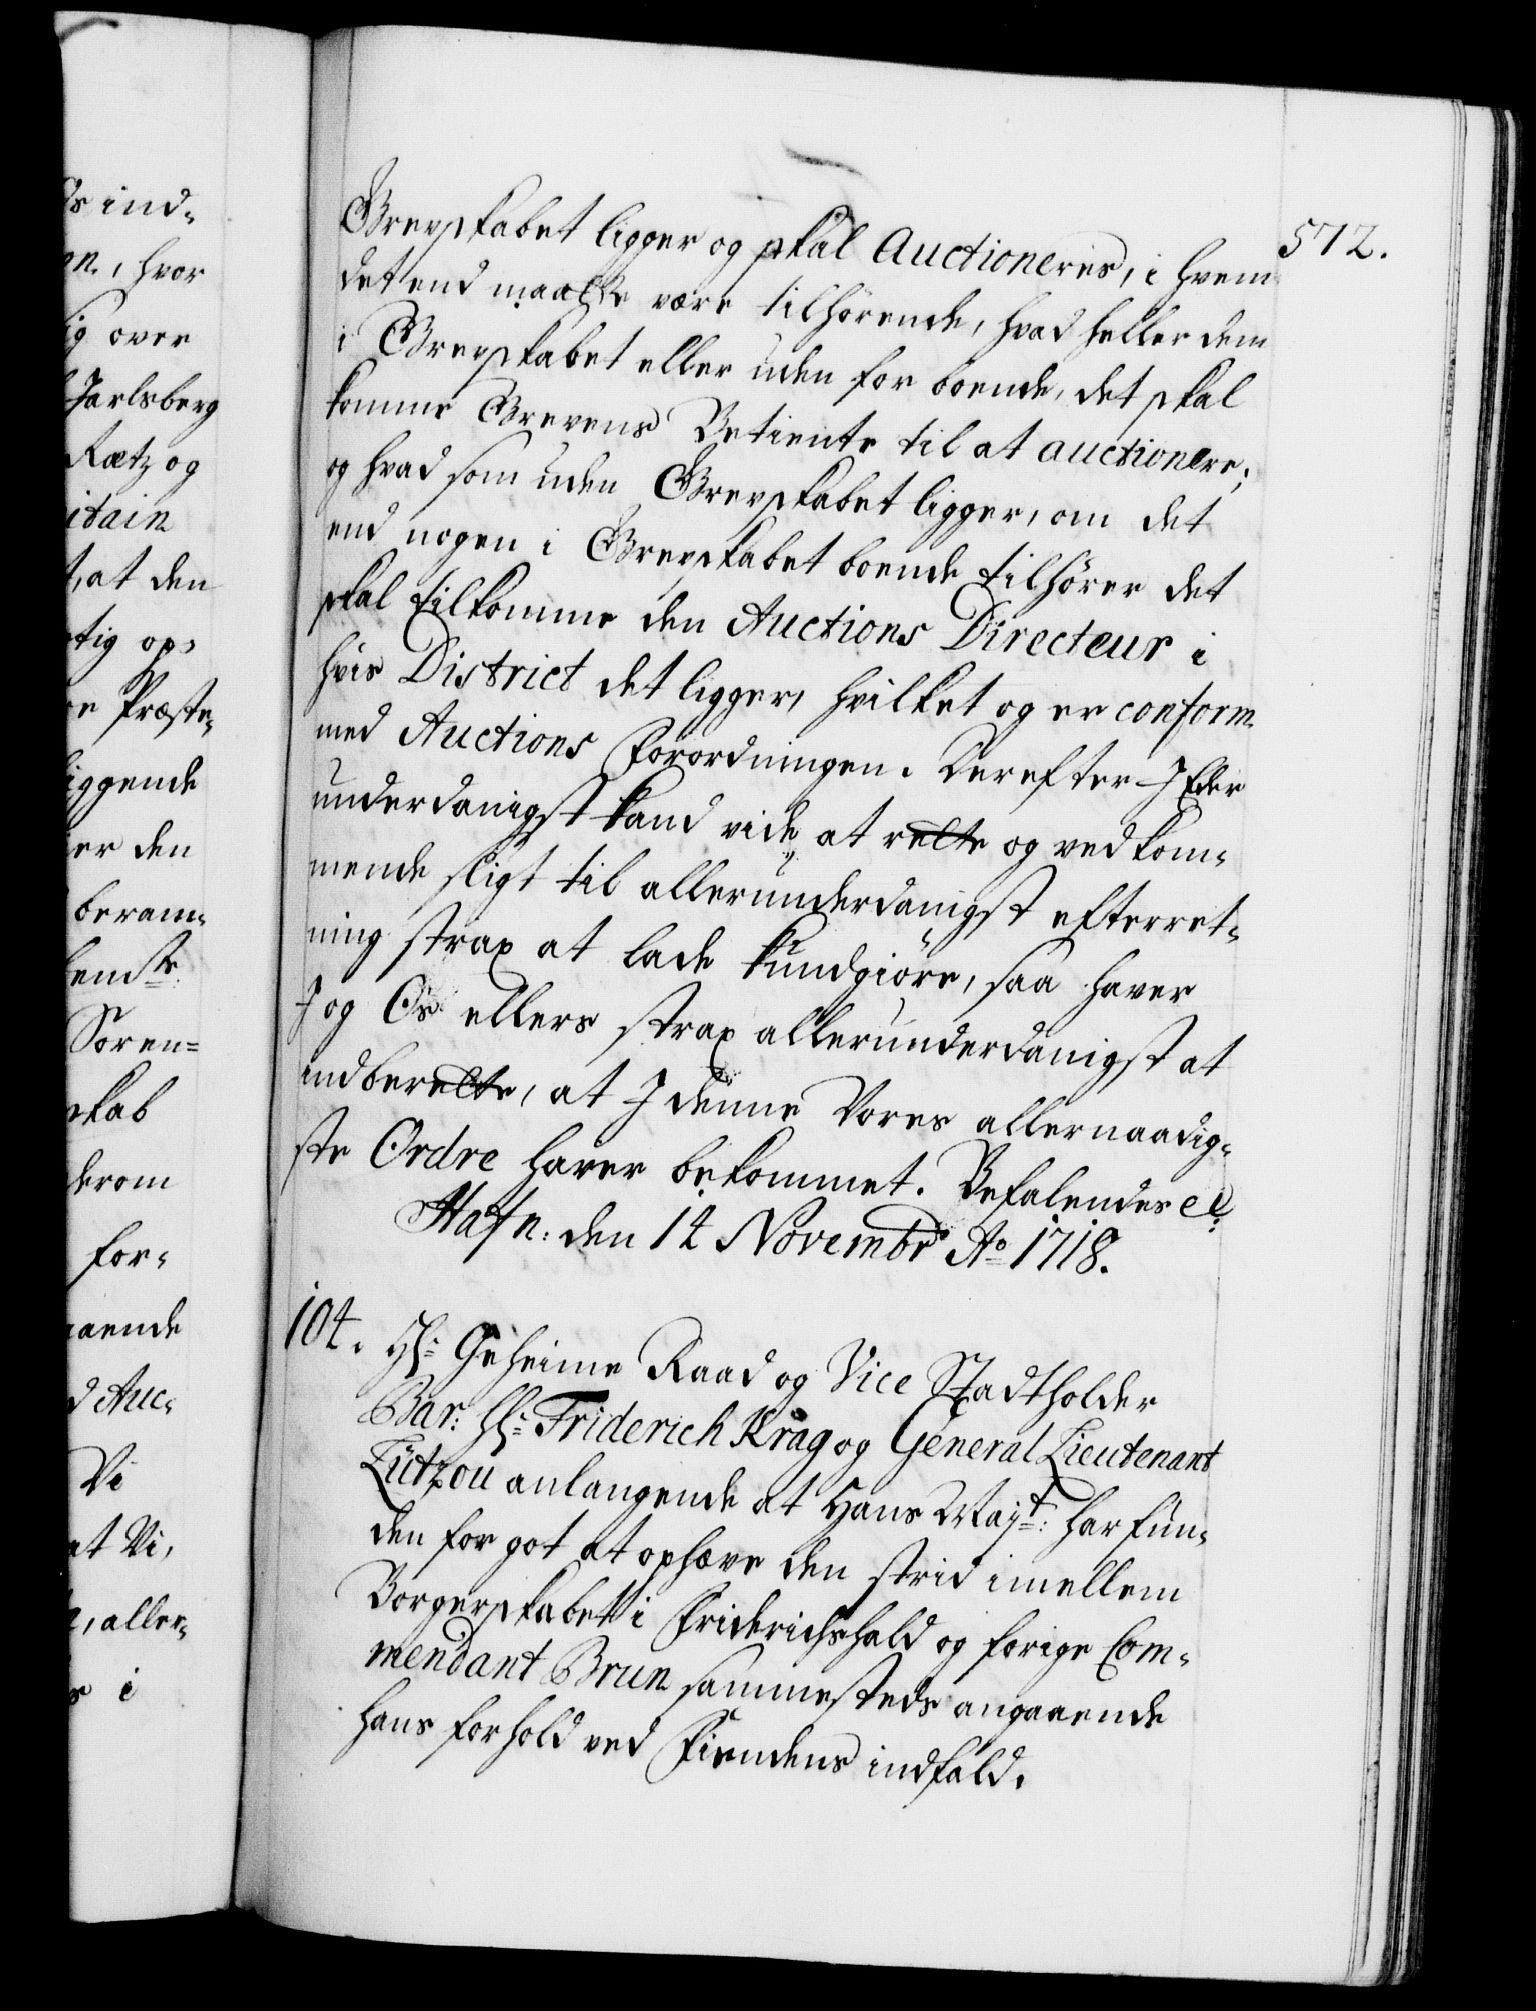 572.
Grevskabet ligger og skal Auctioneris, i hvem
det end maatte være tilhørende, hvad heller dem
i Grevskabet eller uden for boende, det skal
komme Grevens Betiente til at auctionere;
og hvad som uden Grevskabet ligger, om det
end nogen i Grevskabet boende tilhører det
skal tilkomme den Auctions Directeur i
hvis District det ligger, hvilket og er conform
med Auctions Forordningen. Derefter I Eder
underdanigst kand vide at rette og vedkom-
mende sligt til allerunderdanigst efterret-
ning strax at lade kundgiøre, saa haver
I og Os ellers strax allerunderdanigst at
indberette, at I denne Vores allernaadig-
ste Ordre haver bekommet. Befalendes
Hafn: den 14 Novembr Ao 1718.
104. Hr: Geheime Raad og Vice Stadtholder
Bar: Hr: Friderich Krag og General Lieutenant
Lützou anlangende at Hans Mayt: har fun-
den for got at ophæve den strid imellem
Borgerskabet i Friderichshald og forige Com-
mendant Brun sammesteds angaaende
hans forhold ved Fiendens indfald.
ind-
hvor
over
Jarlsberg
Rætz og
at den
tig op-
Præste-
iggende
er den
beram-
Soren-
skab
derom
for-
aaende
Auc-
Vi
at Vi,
aller-
i